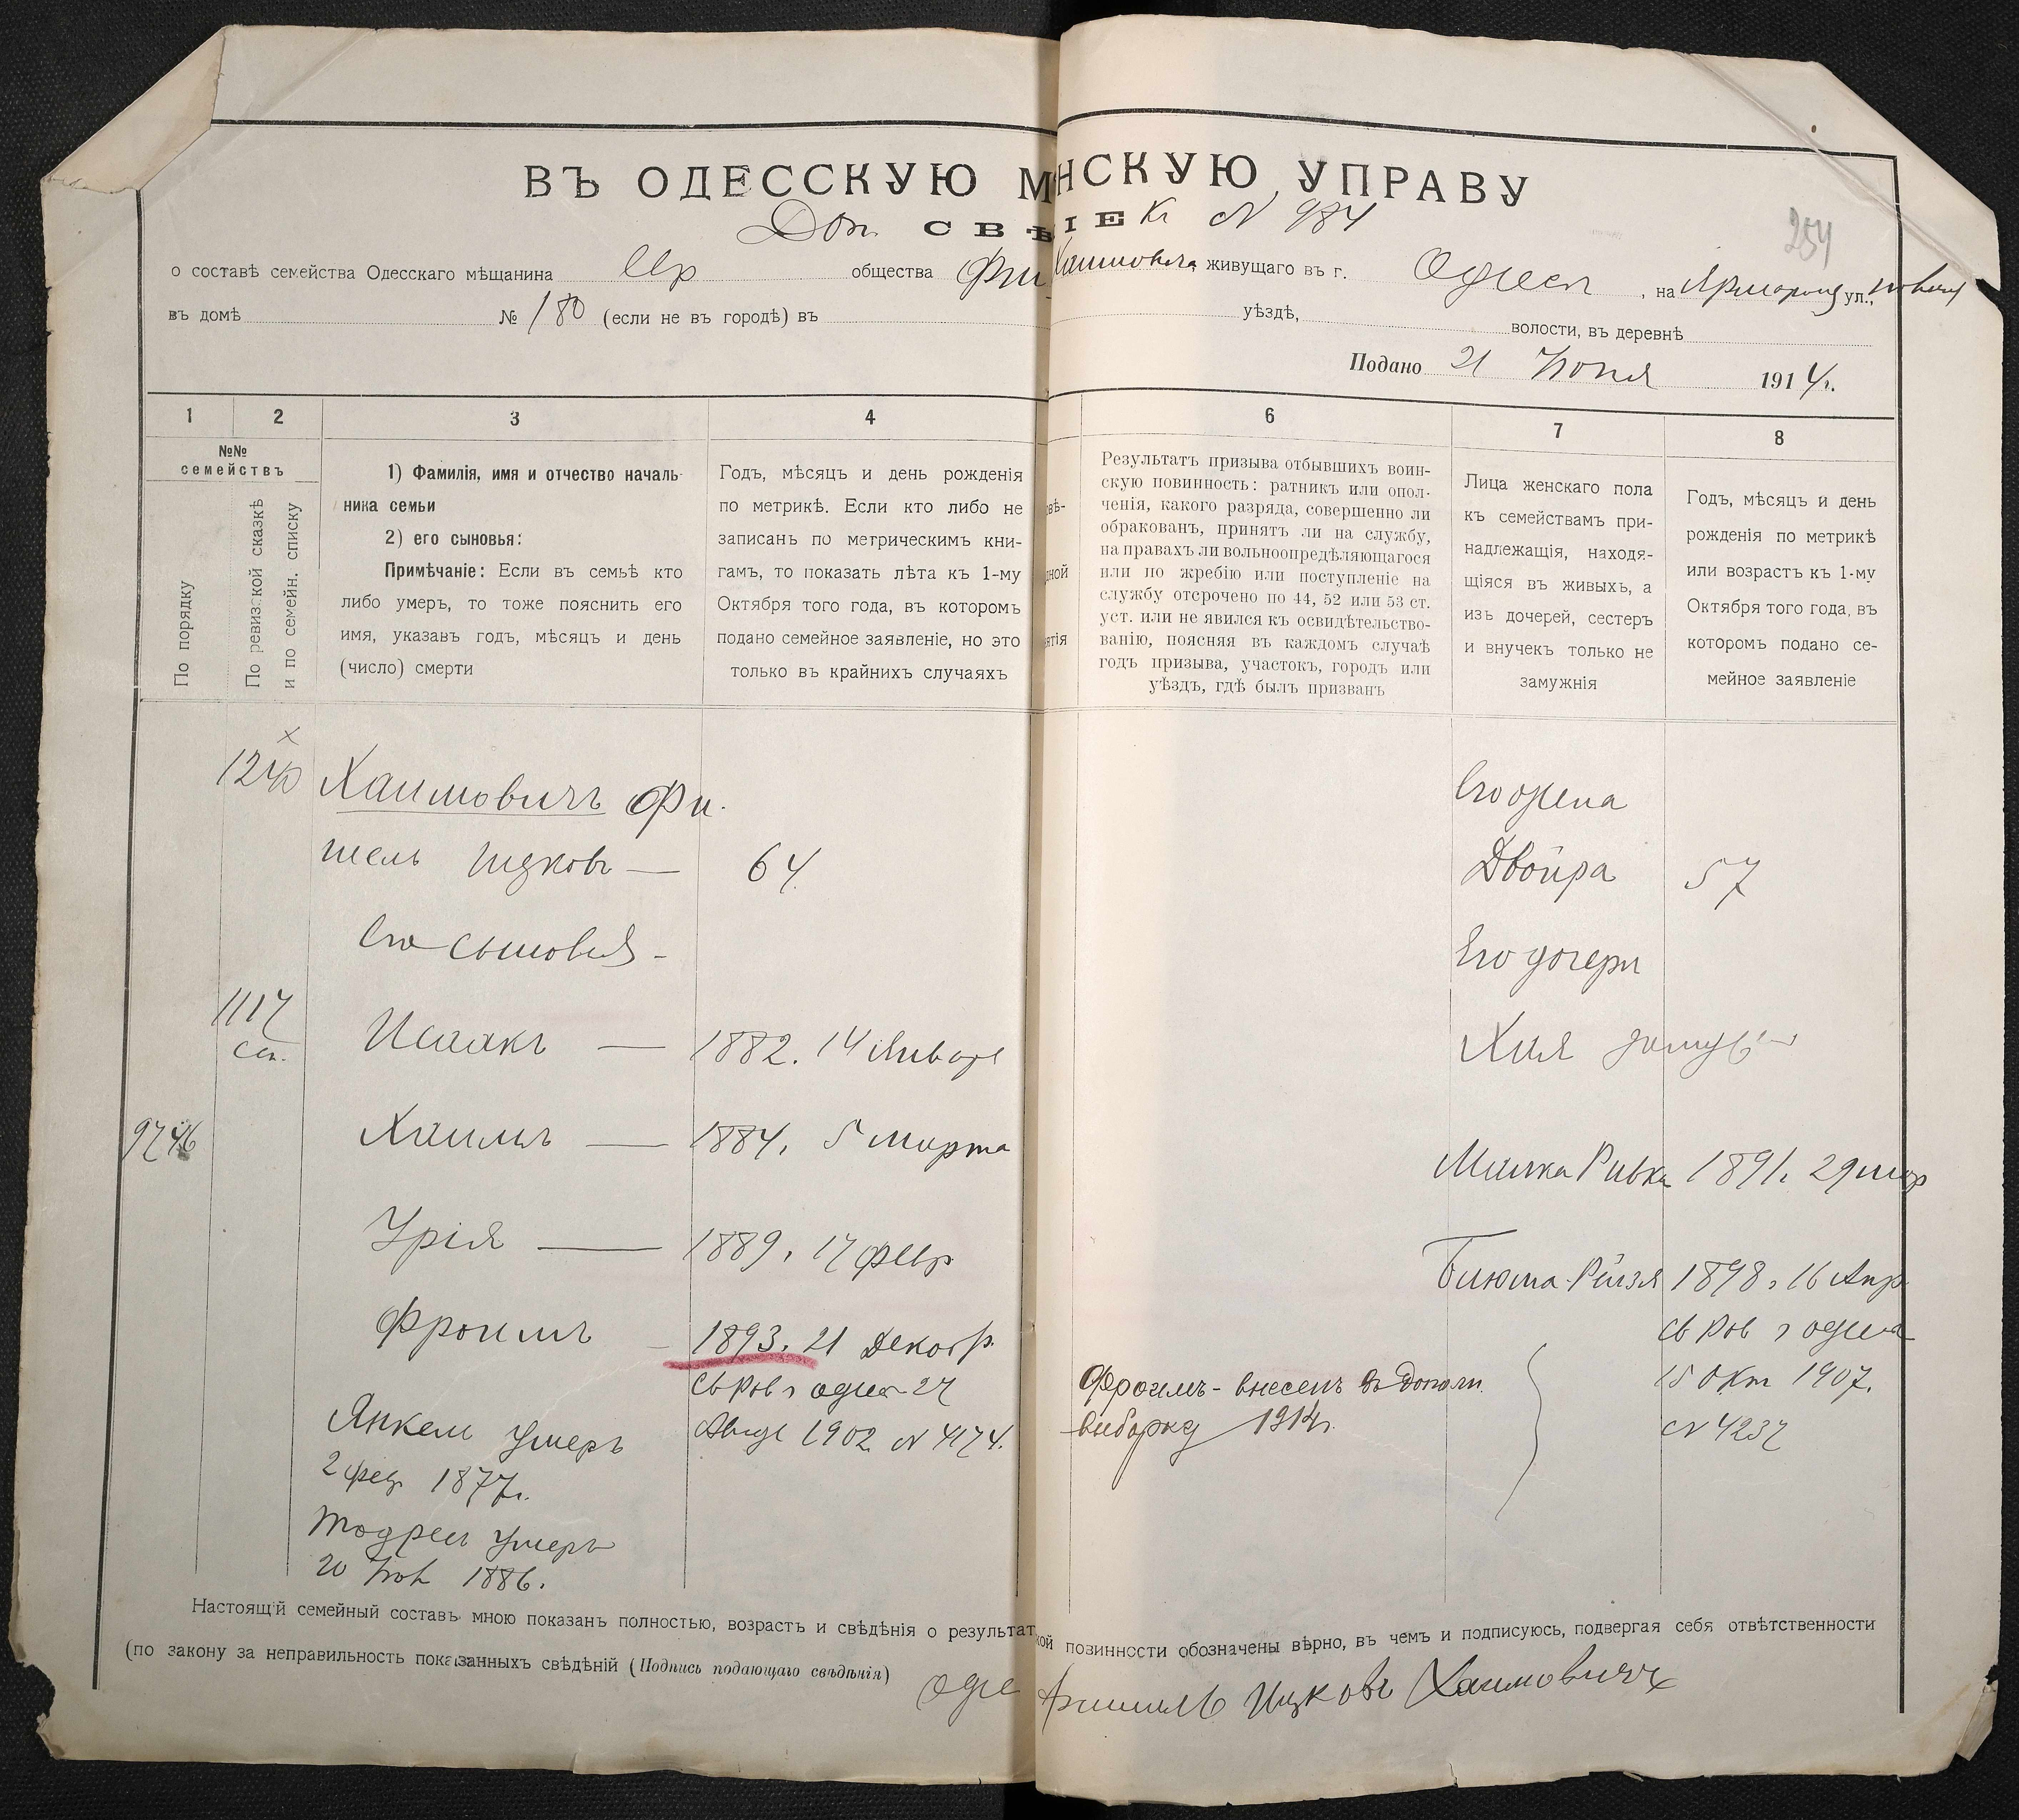 ВЪ ОДЕССКУЮ М НСКУЮ УПРАВУ
Доп. СВѢ ІЕ к N 984
254
о составѣ семейства Одесскаго мѣщанина Евр общества Фи Хаимовича, живущаго въ г. Одессѣ, на Ярмароч ул.,
въ домѣ № 180 (если не въ городѣ) въ уѣздѣ, волости, въ деревнѣ
Подано 21 Іюня 1914 г.
1 2 3 4 6 7 8
№№ семействъ
По порядку
По ревизской сказкѣ
и по семейн. списку
1) Фамилія, имя и отчество началь-
ника семьи
2) его сыновья:
Примѣчаніе: Если въ семьѣ кто
либо умеръ, то тоже пояснить его
имя, указавъ годъ, мѣсяцъ и день
(число) смерти
Годъ, мѣсяцъ и день рожденія
по метрикѣ. Если кто либо не
записанъ по метрическимъ кни-
гамъ, то показать лѣта къ 1-му
Октября того года, въ которомъ
подано семейное заявленіе, но это
только въ крайнихъ случаяхъ
Результатъ призыва отбывшихъ воин-
скую повинность: ратникъ или опол-
ченія, какого разряда, совершенно ли
обракованъ, принятъ ли на службу,
на правахъ ли вольноопредѣляющагося
или по жребію или поступленіе на
службу отсрочено по 44, 52 или 53 ст.
уст. или не явился къ освидѣтельство-
ванію, поясняя въ каждомъ случаѣ
годъ призыва, участокъ, городъ или
уѣздъ, гдѣ былъ призванъ
Лица женскаго пола
къ семействамъ при-
надлежащія, находя-
щіяся въ живыхъ, а
изъ дочерей, сестеръ
и внучекъ только не
замужнія
Годъ, мѣсяцъ и день
рожденія по метрикѣ
или возрастъ къ 1-му
Октября того года, въ
которомъ подано се-
мейное заявленіе
Хаимовичъ Фи-
шель Ицковъ — 64
Его сыновья -
1117
Исаакъ — 1882. 14 Января
9746 Хаимъ — 1884, 5 марта
Урія — 1889, 17 февр
Фроимъ - 1893, 21 Декабр.
св Рав г одес 27
Авгус 1902 N 4174.
Янкель умеръ
2 фев 1877 г.
Тодресъ умеръ
20 1886.
Фроимъ - внесенъ въ дополн.
выборку 1914 г.
Его жена
Двойра 57
Его дочери
Хая замуж
Малка Ривка 1891. 29 мар
Блюма-Рейзя 1898, 16 Апр
св Рав г одесса
15 Окт 1907.
N 4237
Настоящій семейный составъ мною показанъ полностью, возрастъ и свѣдѣнія о результат кой повинности обозначены вѣрно, въ чемъ и подписуюсь, подвергая себя отвѣтственности
(по закону за неправильность показанныхъ свѣдѣній (Подпись подающаго свѣдѣнія) Оде Фишель Ицковъ Хаимовичъ